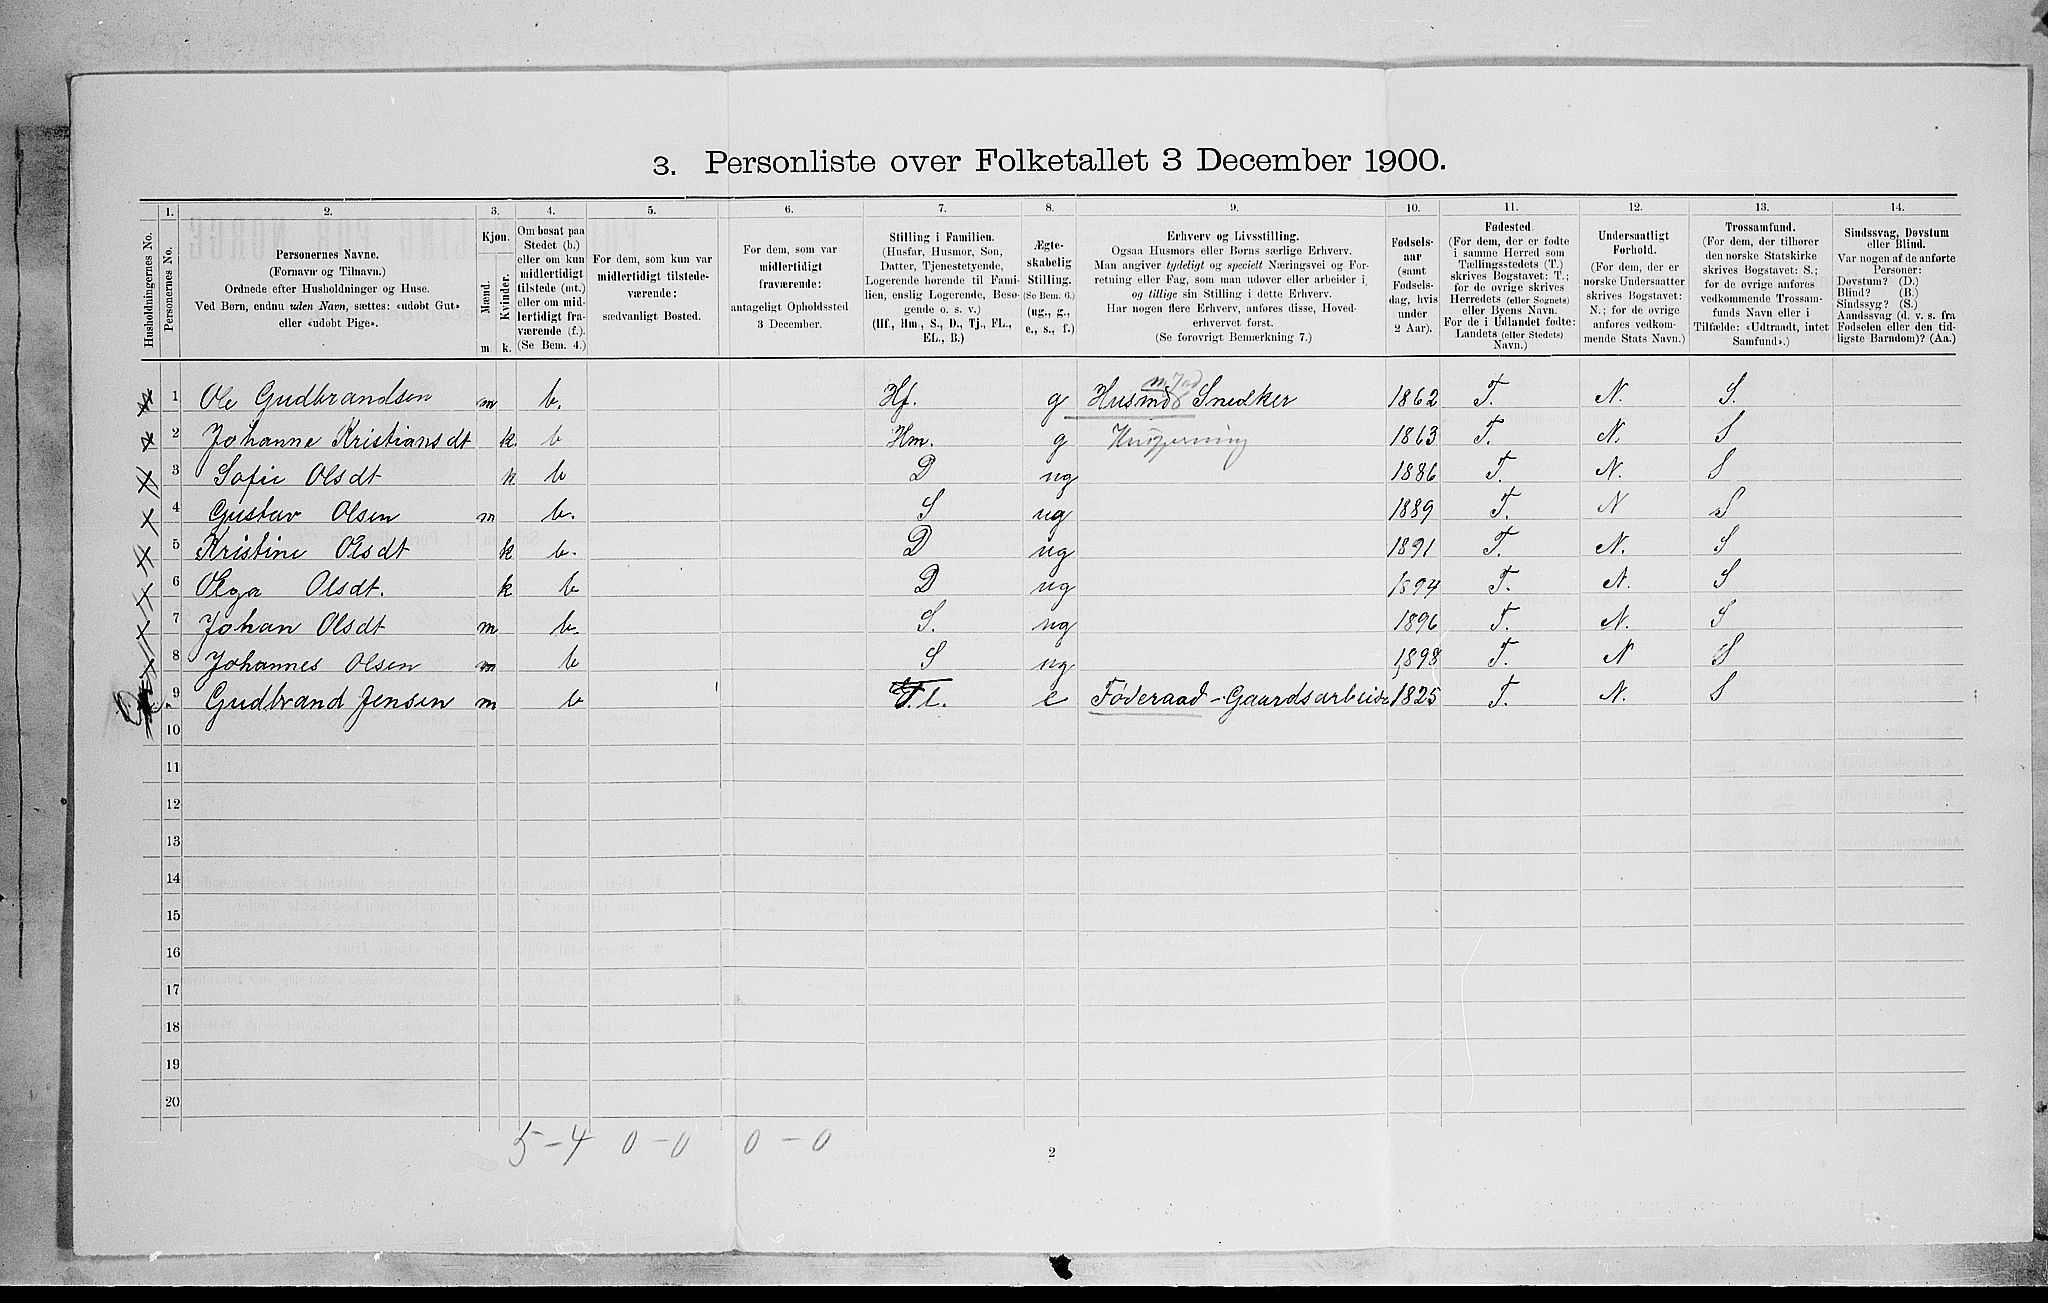 3. Personliste over Folketallet 3 December 1900.
Husholdningernes No.
1.
Personernes No.
2.
Personernes Navne.
(Fornavn og Tilnavn.)
Ordnede efter Husholdninger og Huse.
Ved Børn, endnu uden Navn, sættes: «udøbt Gut»
eller «udøbt Pige».
3.
Kjøn.
Mænd.
Kvinder.
m k.
4.
Om bosat paa
Stedet (b.)
eller om kun
midlertidigt
tilstede (mt.)
eller om mid-
lertidigt fra-
værende (f.).
(Se Bem. 4.)
5.
For dem, som kun var
midlertidigt tilstede-
værende:
sædvanligt Bosted.
6.
For dem, som var
midlertidigt
fraværende:
antageligt Opholdssted
3 December.
7.
Stilling i Familien.
(Husfar, Husmor, Søn,
Datter, Tjenestetyende,
Logerende hørende til Fami-
lien, enslig Logerende, Besø-
gende o. s. v.)
(Hf., Hm., S., D., Tj., FL.,
EL., B.)
8.
Ægte-
skabelig
Stilling.
(Se Bem. 6.)
(ug., g.,
e., s., f.)
9.
Erhverv og Livsstilling.
Ogsaa Husmors eller Børns særlige Erhverv.
Man angiver tydeligt og specielt Næringsvei og For-
retning eller Fag, som man udøver eller arbeider i,
og tillige sin Stilling i dette Erhverv.
Har nogen flere Erhverv, anføres disse, Hoved-
erhvervet først.
(Se forøvrigt Bemærkning 7.)
10.
Fødsels-
aar
(samt
Fødsels-
dag, hvis
under
2 Aar).
11.
Fødested.
(For dem, der er fødte
i samme Herred som
Tællingsstedets (T.)
skrives Bogstavet: T.;
for de øvrige skrives
Herredets (eller Sognets)
eller Byens Navn.
For de i Udlandet fødte:
Landets (eller Stedets)
Navn.)
12.
Undersaatligt
Forhold.
(For dem, der er
norske Undersaatter
skrives Bogstavet:
N.; for de øvrige
anføres vedkom-
mende Stats Navn.)
13.
Trossamfund.
(For dem, der tilhører
den norske Statskirke
skrives Bogstavet: S.;
for de øvrige anføres
vedkommende Trossam-
funds Navn eller i
Tilfælde: «Udtraadt, intet
Samfund».)
14.
Sindssvag, Døvstum
eller Blind.
Var nogen af de anførte
Personer:
Døvstum? (D.)
Blind? (B.)
Sindssyg? (S.)
Aandssvag (d. v. s. fra
Fødselen eller den tid-
ligste Barndom)? (Aa.)
1 Ole Gudbrandsen m b. Hf. g Husmd Snedker 1862 T. N. S.
2 Johanne Kristiansdt k. b Hm. g 1863 T. N. S
3 Sofie Olsdt k b D ug 1886 T. N. S
4 Gustav Olsen m b. S ug 1889 T. N S
5 Kristine Olsdt k b. D ug 1891 T. N. S
6 Olga Olsdt. k b D ug 1894 T. N. S
7 Johan Olsdt m b. S. ug 1896 T. N. S
8 Johannes Olsen m b S ug 1898 T. N S
9 Gudbrand Jensen m b e Føderaad - Gaardsarbeide 1825 T. N. S
10
11
12
13
14
15
16
17
18
19
20
5 - 4 0 - 0 0 - 0
2